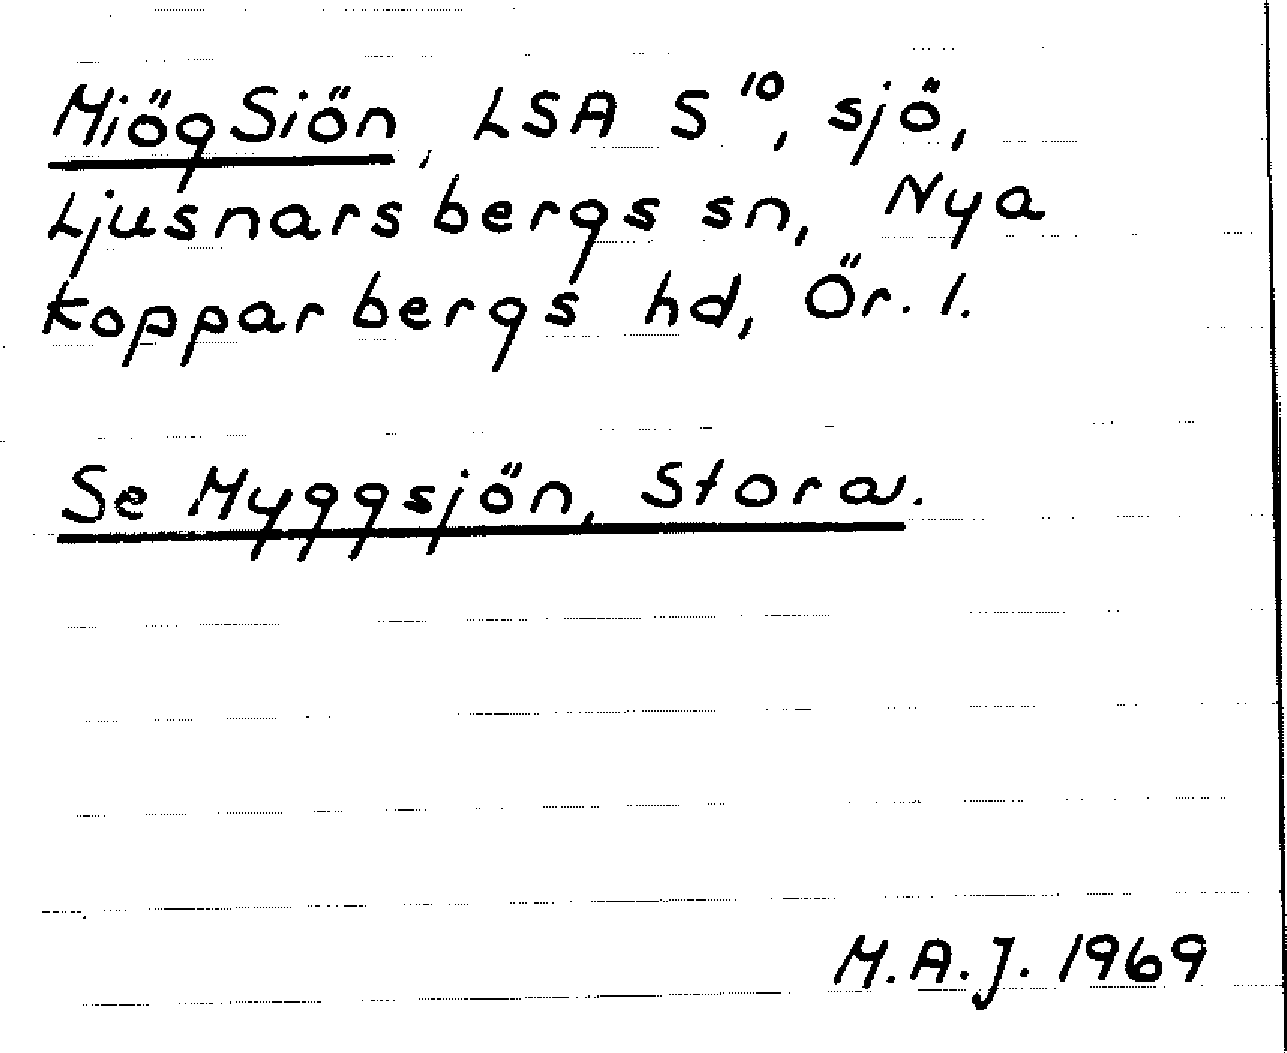 Miög Siön, LSA S¹⁰, sjö,
Ljusnarsbergs sn, Nya
Kopparbergs hd, Ör. l.
Se Myggsjön, Stora.
M.A.J. 1969